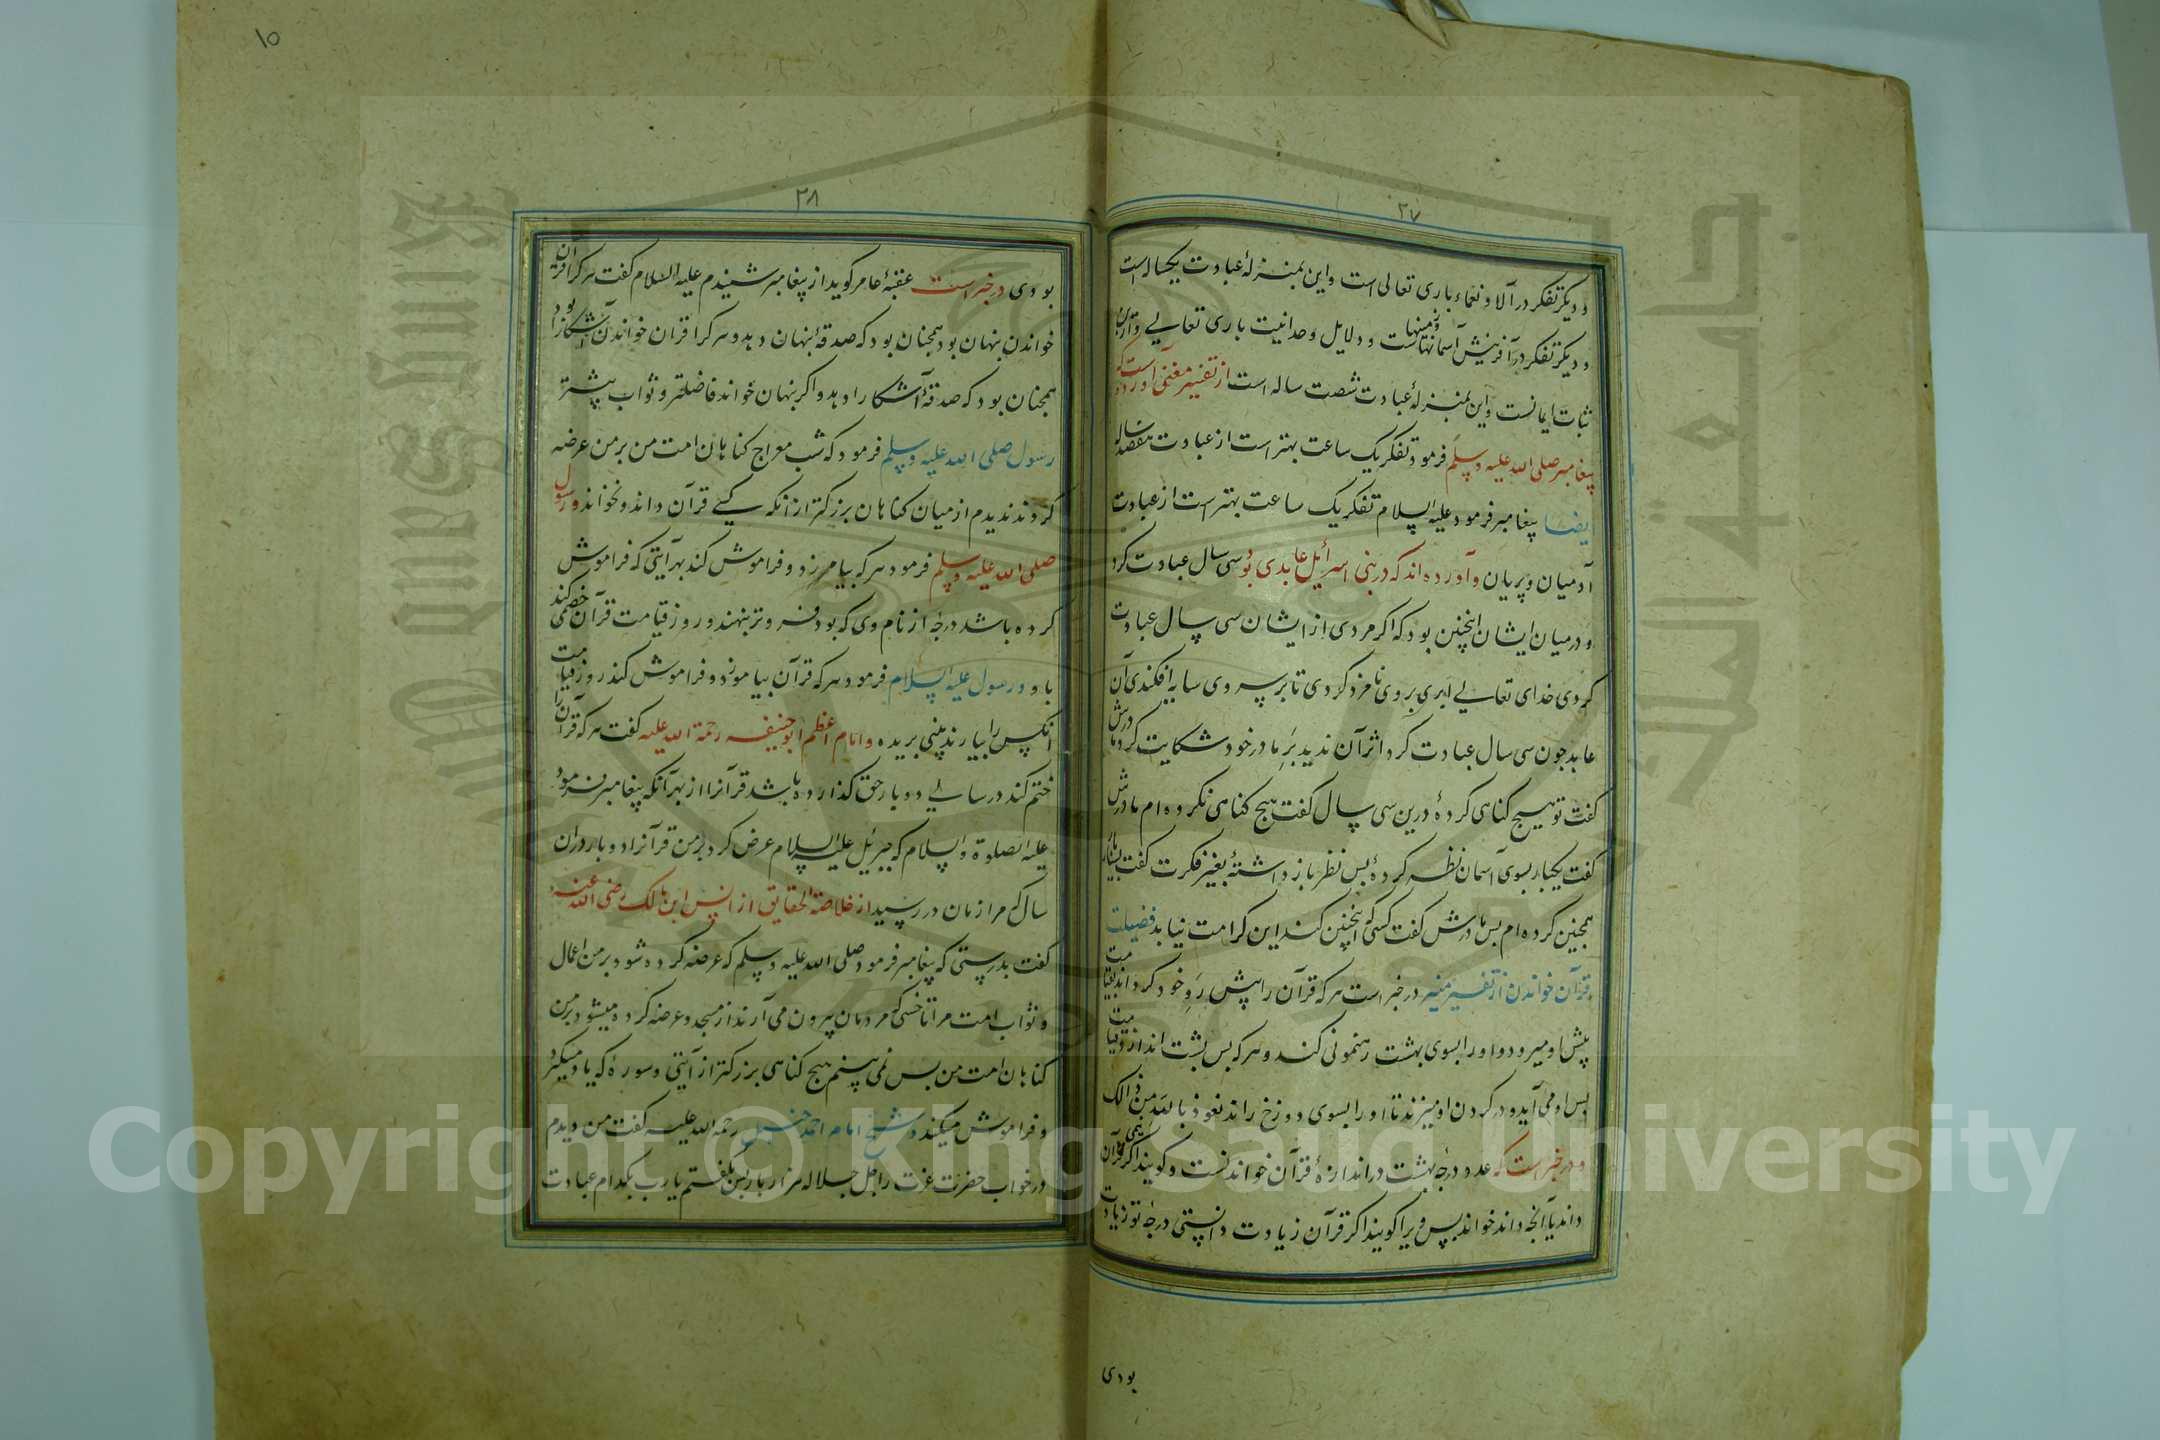 ۲۷
و دیکر تفکر در آلا و نعماء باری تعالی است و این بمنزلهٔ عبادت یکساله است
و دیکر تفکر در آفرینش آسمانها و زمینهاست و دلایل وحدانیت باری تعالی و تران
ثبات ایمانست و این بمنزلهٔ عبادت شصت ساله است از تفسیر مغنی آورده است که
پیغامبر صلی الله علیه وسلم فرمود تفکر یک ساعت بهتر است از عبادت هفصد سال
ایضا پیغامبر فرمود علیه السلام تفکر یک ساعت بهتر است از عبادت
آدمیان و پریان و آورده اند که در بنی اسرائیل عابدی بود سی سال عبادت کرد
و در میان ایشان انچنین بود که اکر مردی از ایشان سی سال عبادت
کردی خدای تعالی ابری بر وی نامزد کردی تا بر سر وی سایه افکندی آن
عابد جون سی سال عبادت کرد اثر آن ندید بر مادر خود شکایت کرد مادرش
کفت تو هیچ کناهی کردهٔ درین سی سال کفت هیچ کناهی نکرده ام مادرش
کفت یکبار بسوی آسمان نظر کردهٔ بس نظر باز داشتهٔ بغیر فکرت کفت بسیار بار
همچنین کرده ام بس مادرش کفت کسی که اینچنین کند این کرامت نیابد فضیلت
قرآن خواندن از تفسیر منیر در خبر است هر که قرآن را پیش رو خود کرداند بقیامت
پیش او میرود و او را بسوی بهشت رهنمونی کند و هر که بس پشت اندازد قیامت
بس او می آید و در کردن او میزند تا او را بسوی دوزخ راند نعوذ بالله من ذالک
و در خبر است که عدد درجهٔ بهشت در اندازهٔ قرآن خواندنست و کویند اکر قرآن
داند یا انجه داند خواند بس ویرا کویند اکر قرآن زیادت دانستی درجهٔ تو زیادت
بودی
۱۵
۲۸
بودی در خبر است عقبهٔ عامر کوید از پیغامبر شنیدم علیه السلام کفت هر کرا قرآن
خواندن بنهان بود همچنان بود که صدقهٔ بنهان دهد و هر کرا قرآن خواندن آشکارا بود
همچنان بود که صدقهٔ آشکارا دهد و اکر بنهان خواند فاضلتر و ثواب بیشتر
رسول صلی الله علیه وسلم فرمود که شب معراج کناهان امت من بر من عرضه
کردند ندیدم از میان کناهان بزرکتر از انکه کسی قرآن داند و نخواند و رسول
صلی الله علیه وسلم فرمود هر که بیاموزد و فراموش کند بهر آیتی که فراموش
کرده باشد درجهٔ از نام وی که بود فروتر بنهند و روز قیامت قرآن خصمی کند
با و و رسول علیه السلام فرمود هر که قرآن بیاموزد و فراموش کند روز قیامت
انکس را بیارند بینی بریده و امام اعظم ابوحنیفه رحمة الله علیه کفت هر که قرآن را
ختم کند در سالی دو بار حق کذارده باشد قرآنرا از بهر آنکه پیغامبر فرمود
علیه الصلوة والسلام که جبرئیل علیه السلام عرض کرد بر من قرآنرا دو بار در ان
سال که مرا زمان در رسید از خلاصة الحقایق از انس ابن مالک رضی الله عنه
کفت بدرستی که پیغامبر فرمود صلی الله علیه وسلم که عرضه کرده شود بر من اعمال
و ثواب امت مرا تا خسی که مردمان بیرون می آرند از مسجد و عرضه کرده میشود بر من
کناهان امت من بس نمی بینم هیچ کناهی بزرکتر از آیتی و سورهٔ که یاد میکیرد
و فراموش میکند و شیخ امام احمد حنبل رحمه الله علیه کفت من دیدم
در خواب حضرت عزت را جل جلاله هزار بار بس بکفتم یا رب بکدام عبادت
Copyright © King Saud University